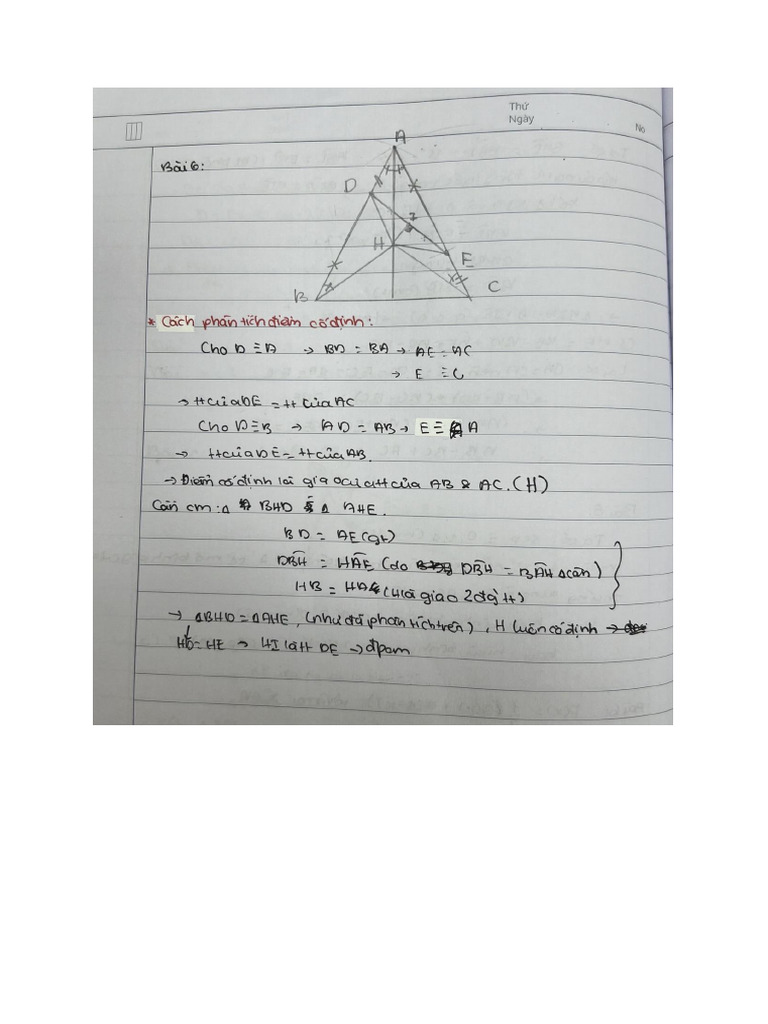 Thứ
Ngày
No
Bài 6:
A
D
I
H
E
B
C
* Cách phân tích điểm cố định:
Cho D ≡ A → BD = BA → AE = AC
→ E ≡ C
→ tt của DE = tt của AC
Cho D ≡ B → AD = AB → E ≡ A
→ tt của DE = tt của AB.
→ Điểm cố định là giao của tt của AB & AC. (H)
Cần cm: Δ BHD = Δ AHE.
BD = AE (gt)
DBH = HAE (do DBH = BAH Δ cân)
HB = HA (H là giao 2 đg tt)
→ ΔBHD = ΔAHE, (như đã phân tích trên), H luôn cố định →
HD = HE → HI là tt DE → đpcm